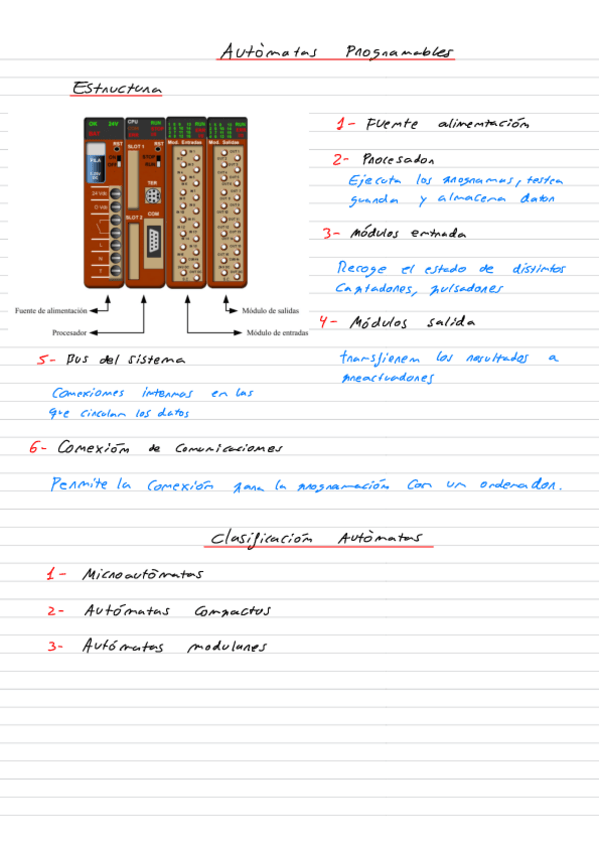 Autómatas Programables
Estructura
OK 24V
BAT
RST
PILA
ON
OFF
24 Vdc
0 Vdc
L
N
T
CPU RUN
SLOT 1
RST
STOP
RUN
TER
COM
SLOT 2
Mod. Entradas
Mod. Salidas
Fuente de alimentación
Procesador
Módulo de salidas
Módulo de entradas
1- Fuente alimentación
2- Procesador
Ejecuta los programas, testea
guarda y almacena datos
3- Módulos entrada
Recoge el estado de distintos
Captadores, pulsadores
4- Módulos salida
transfieren los resultados a
preactuadores
5- Bus del sistema
Conexiones internas en las
que circulan los datos
6- Conexión de comunicaciones
Permite la conexión para la programación con un ordenador.
Clasificación Autómatas
1- Microautómatas
2- Autómatas Compactos
3- Autómatas modulares